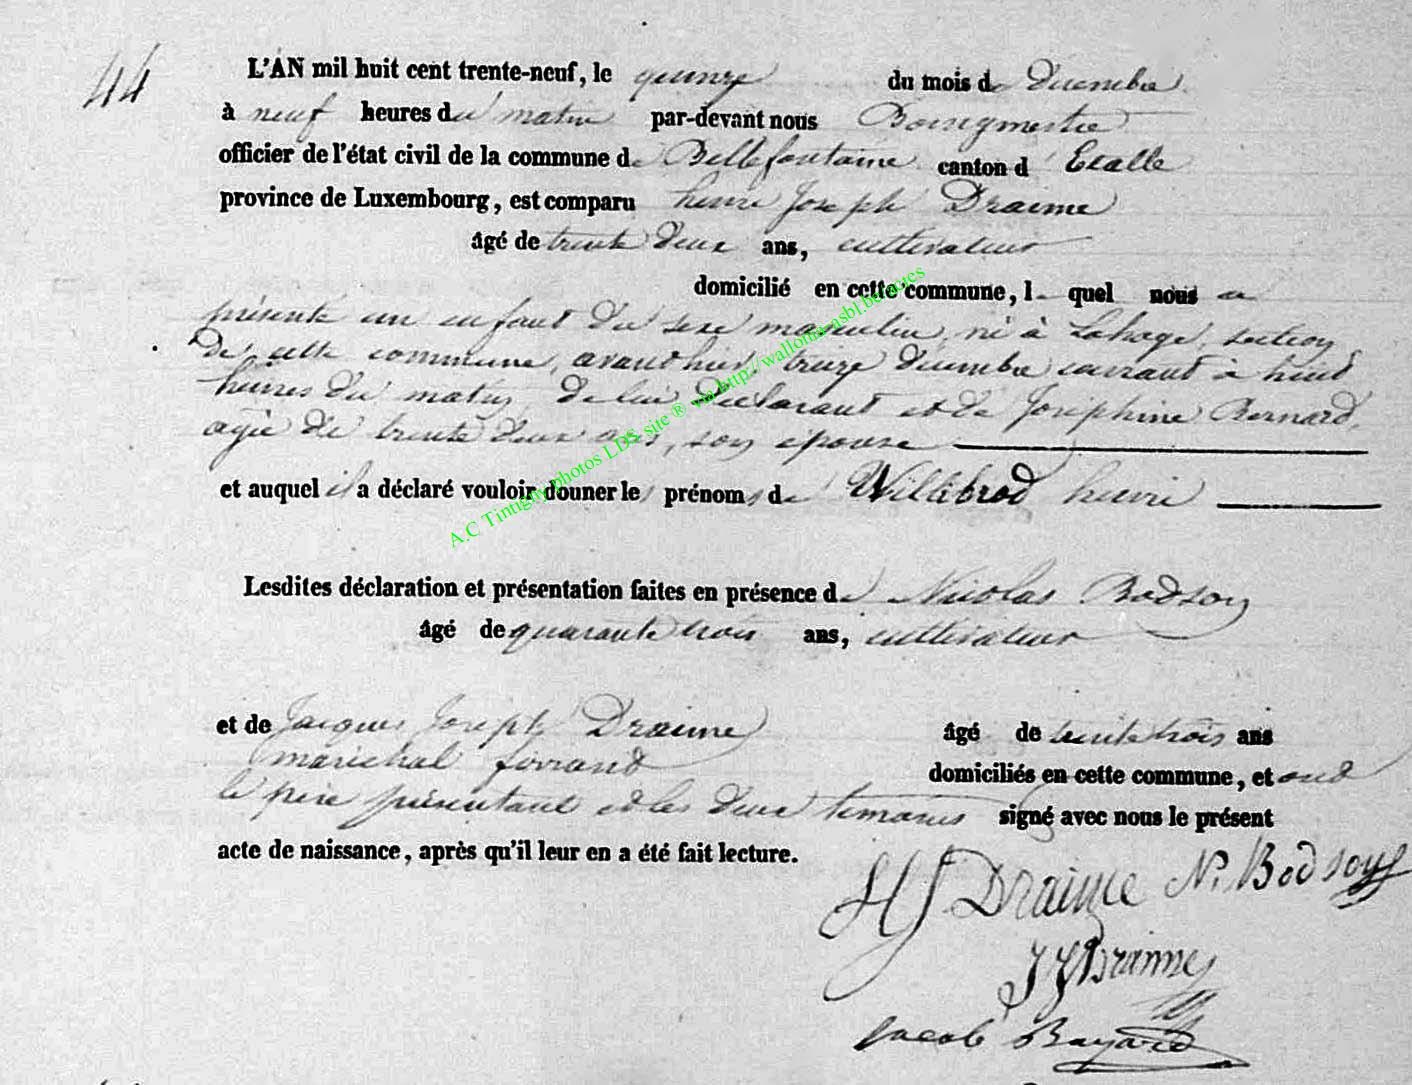 44
L'AN mil huit cent trente-neuf, le quinze du mois de Décembre
à neuf heures du matin par-devant nous Bourgmestre
officier de l'état civil de la commune de Bellefontaine canton d'Etalle
province de Luxembourg, est comparu henri Joseph Draime
âgé de trente deux ans, cultivateur
domicilié en cette commune, le quel nous a
présenté un enfant du sexe masculin, né à Lahage, section
de cette commune, avant hier treize décembre courant à huit
heures du matin, de lui Déclarant et de Joséphine Bernard,
agée de trente deux ans, son épouse
et auquel il a déclaré vouloir donner les prénoms de Willebrod henri
Lesdites déclaration et présentation faites en présence de Nicolas Bodson
âgé de quarante trois ans, cultivateur
et de Jacques Joseph Draime âgé de trente trois ans
maréchal ferrant domiciliés en cette commune, et ont
le père présentant et les deux témoins signé avec nous le présent
acte de naissance, après qu'il leur en a été fait lecture.
HJ Draime N. Bodson
J J Draime
Jacob Bayard
A.C Tintigny photos LDS site ® via http://wallonia-asbl.be/actes